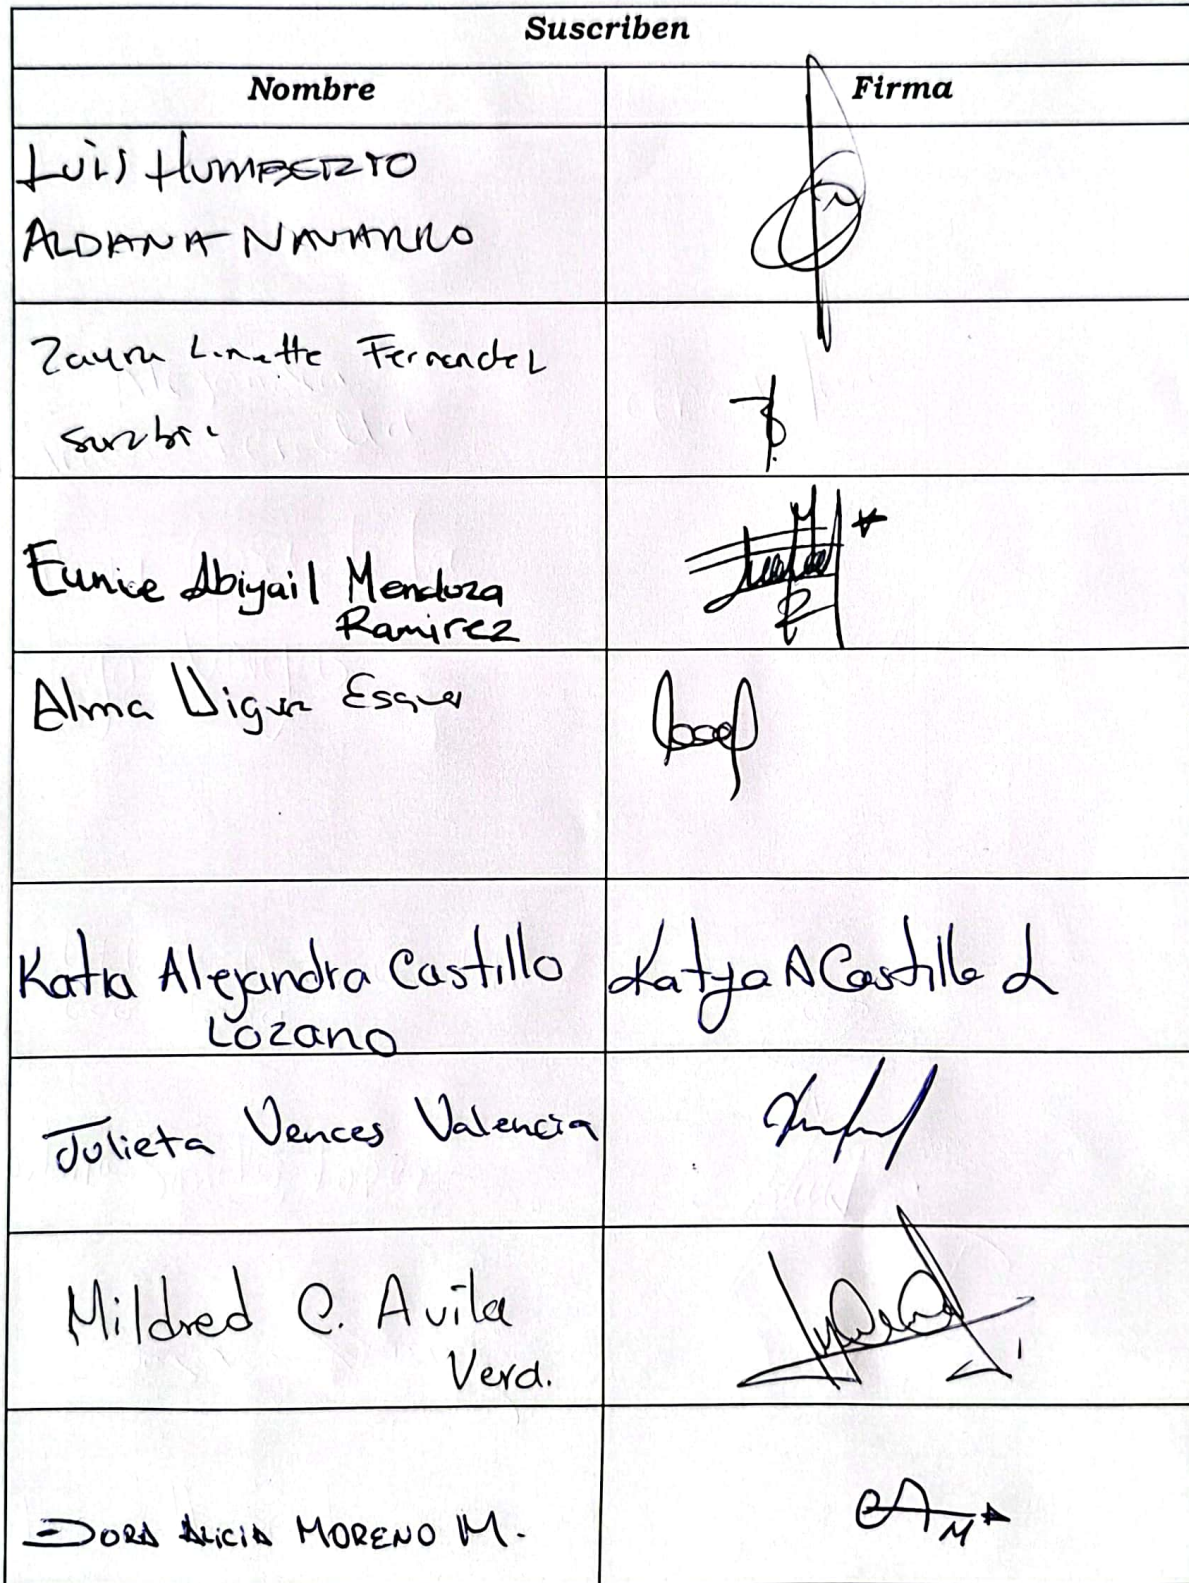 Suscriben
Nombre Firma
LUIS HUMBERTO
ALDANA NAVARRO
Zayra Linette Fernandez
Eunice Abigail Mendoza
Ramirez
Alma
Katia Alejandra Castillo Katya A Castillo L
Lozano
Julieta Vences Valencia
Mildred C. Avila
Vera.
DORA ALICIA MORENO M.